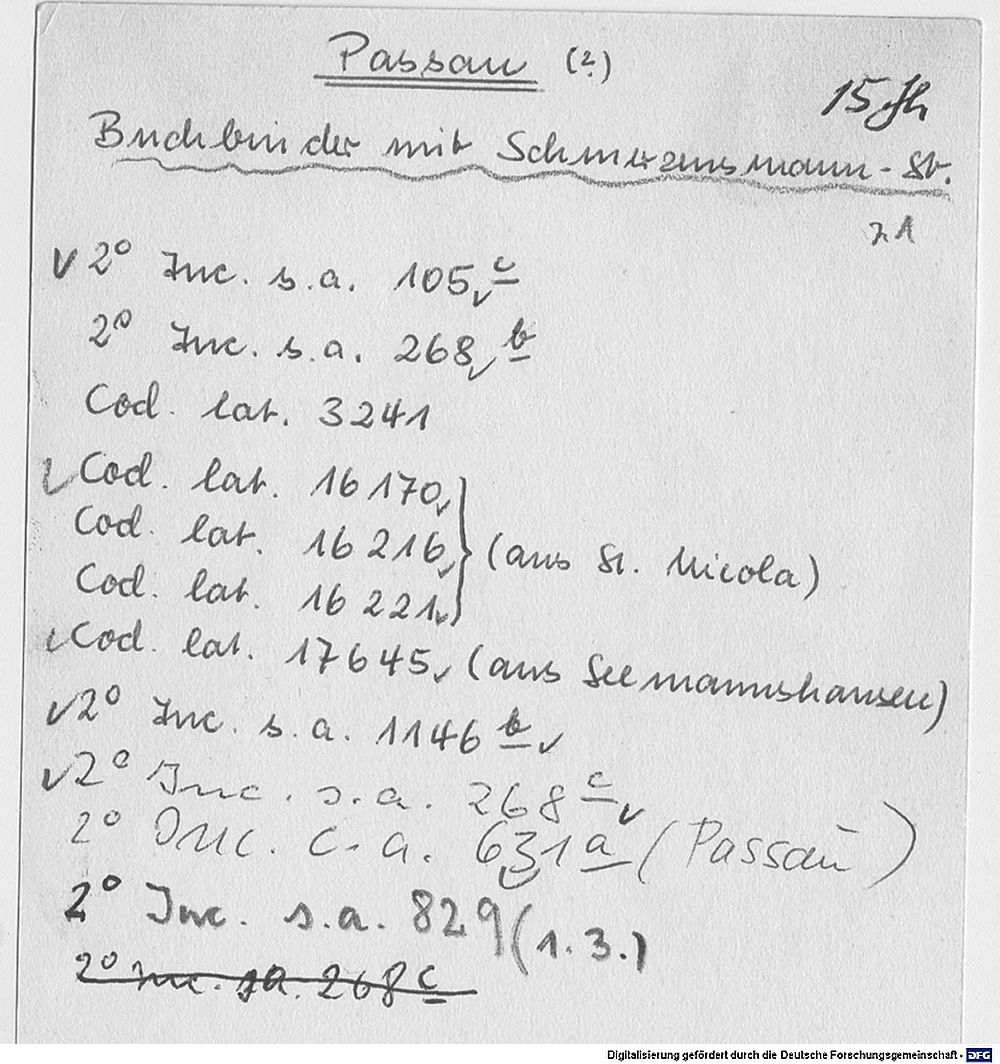 Passau (?)
15 Jh
Buchbinder mit Schmerzensmann-St.
z 1
✓ 2° Inc. s.a. 105 c ✓
2° Inc. s.a. 268 b ✓
Cod. lat. 3241
✓ Cod. lat. 16170 ✓
Cod. lat. 16216 ✓ } (aus St. Nicola)
Cod. lat. 16221 ✓
✓ Cod. lat. 17645 ✓ (aus Seemannshausen)
✓ 2° Inc. s.a. 1146 b ✓
✓ 2° Inc. s.a. 268 c ✓
2° Inc. c.a. 631 a (Passau)
2° Inc. s.a. 829 (1. 3.)
2° Inc. s.a. 268 c
Digitalisierung gefördert durch die Deutsche Forschungsgemeinschaft - DFG